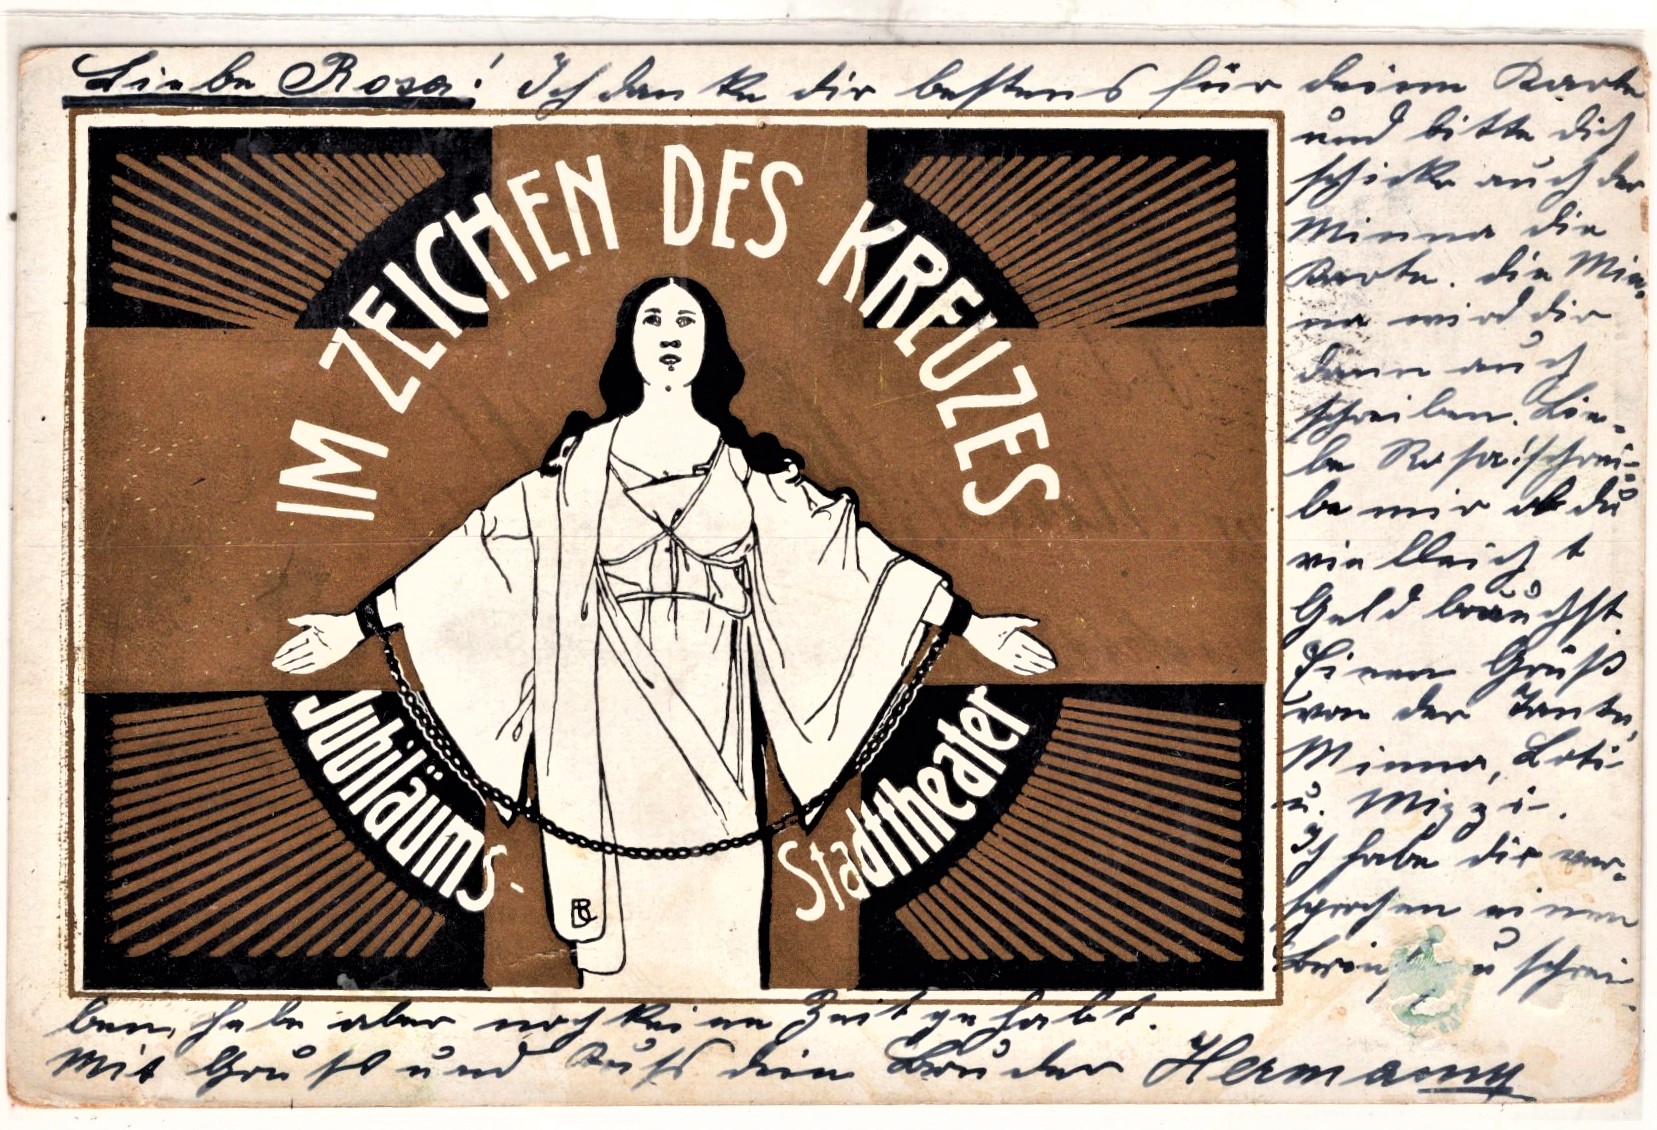 Liebe Rosa! Ich danke dir bestens für deine Karte
und bitte dich
schicke auch der
Minna die
Karte. die Min-
na wird dir
dann auch
schreiben. Lie-
be Rosa! schrei-
be mir ob du
vielleicht
Geld brauchst.
Einen Gruß
von der Tante,
Minna, Loti
u. Mizzi.
Ich habe dir ver-
sprochen einen
Brief zu schrei-
ben, habe aber noch keine Zeit gehabt.
Mit Gruß und Kuß dein Bruder Hermann
IM ZEICHEN DES KREUZES
Jubiläums-
Stadttheater